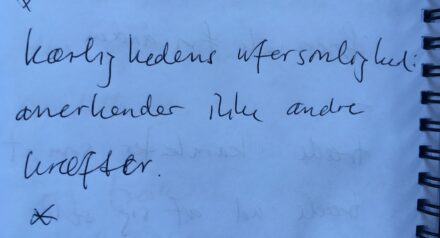 kærlighedens upersonlighed:
anerkender ikke andre
kræfter.